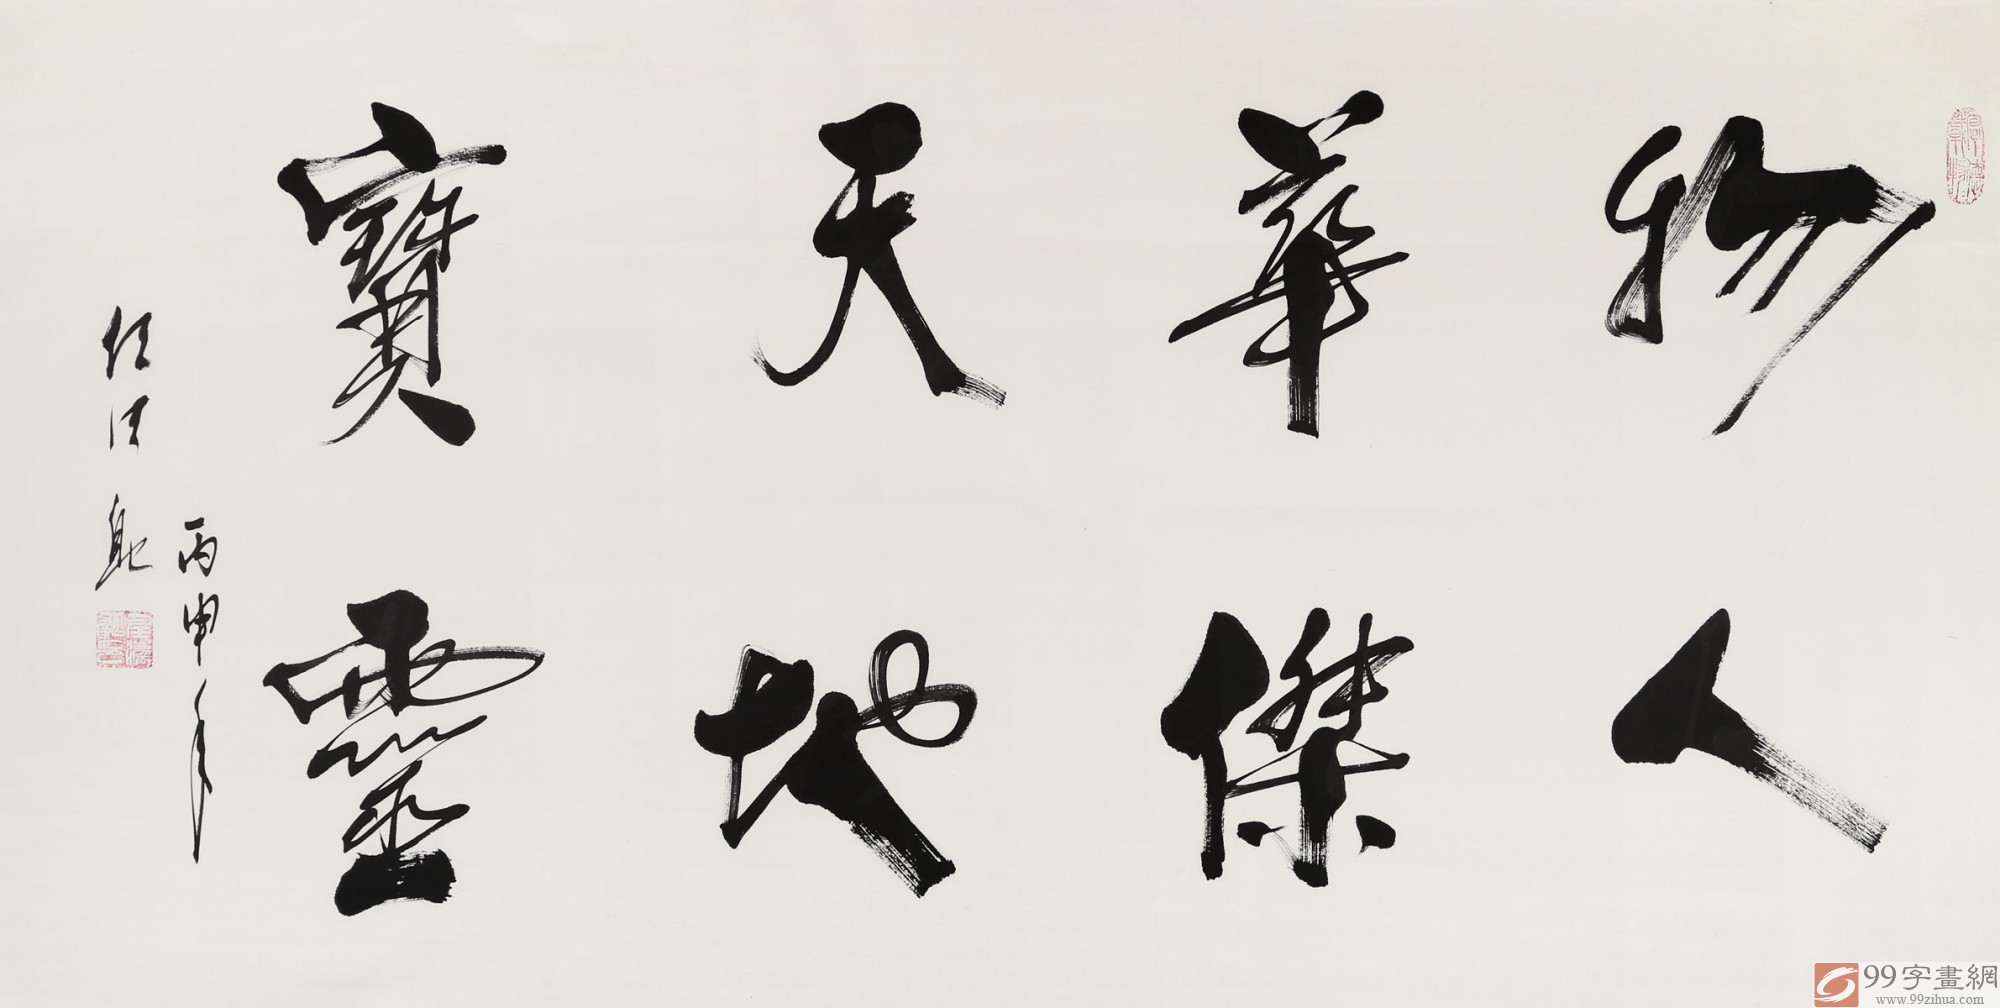 物華天寶
人傑地靈
丙申年
任法融
99字畫網
www.99zihua.com